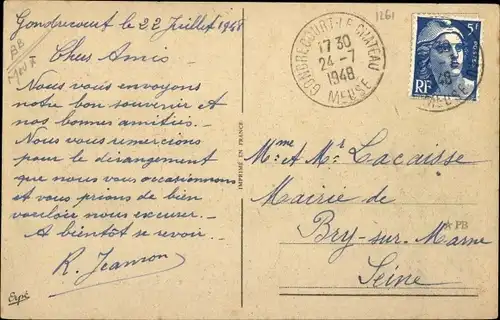 Gondrecourt le 22 Juillet 1948
Chers Amis
Nous vous envoyons
notre bon souvenir et
nos bonnes amitiés. -
Nous vous remercions
pour le dérangement
que nous vous occasionnons
et vous prions de bien
vouloir nous excuser. -
A bientôt se revoir. -
R. Jeanson
Erpé
IMPRIMÉ EN FRANCE
1261
GONDRECOURT-LE-CHATEAU
17 30
24 - 7
1948
MEUSE
5F
RF
48
MEUSE
Mme & Mr Lacaisse
Mairie de
Bry-sur-Marne
Seine
PB